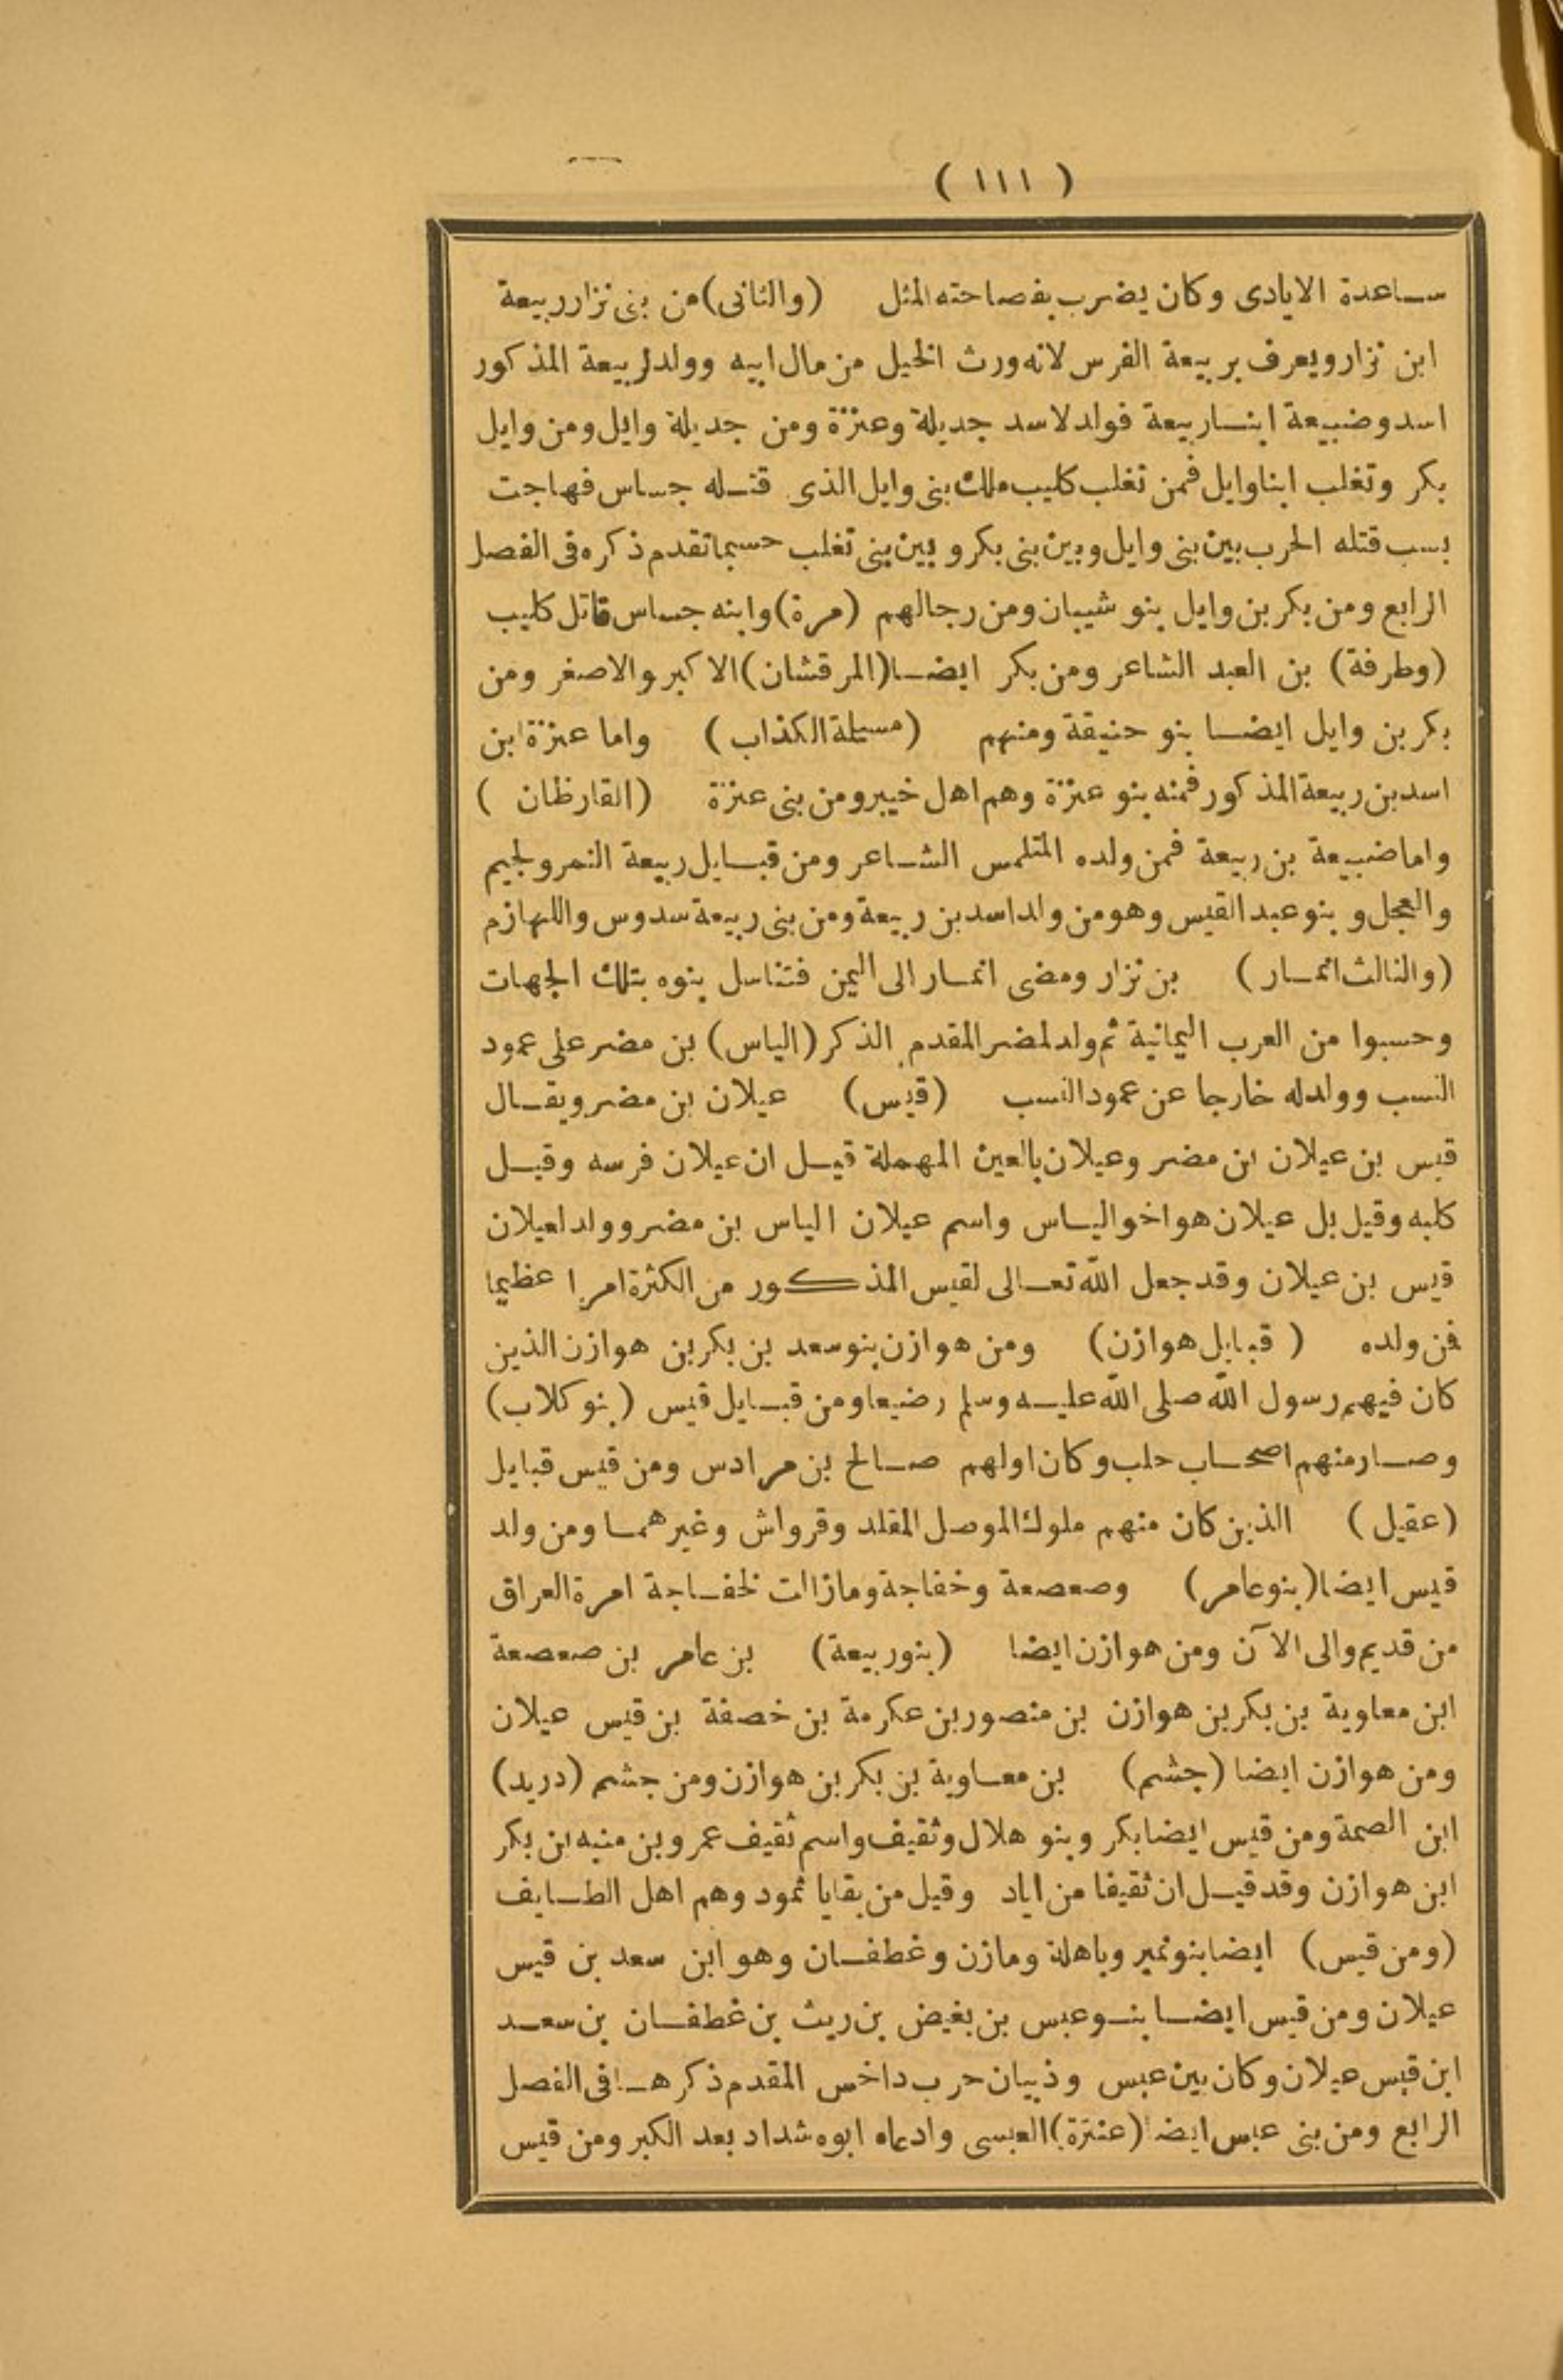 ( ١١١ )
ساعدة الايادى وكان يضرب بفصاحته المثل (والثانى) من بنى نزار ربيعة
ابن نزار ويعرف بربيعة الفرس لانه ورث الخيل من مال ابيه وولد لربيعة المذكور
اسد وضبيعة ابنا ربيعة فولد لاسد جديلة وعنزة ومن جديلة وايل ومن وايل
بكر وتغلب ابنا وايل فمن تغلب كليب ملك بنى وايل الذى قتله جساس فهاجت
بسب قتله الحرب بين بنى وايل وبين بنى بكر وبين بنى تغلب حسبما تقدم ذكره فى الفصل
الرابع ومن بكر بن وايل بنو شيبان ومن رجالهم (مرة) وابنه جساس قاتل كليب
(وطرفة) بن العبد الشاعر ومن بكر ايضا (المرقشان) الاكبر والاصغر ومن
بكر بن وايل ايضا بنو حنيفة ومنهم (مسيلة الكذاب) واما عنزة ابن
اسد بن ربيعة المذكور فمنه بنو عنزة وهم اهل خيبر ومن بنى عنزة (القارظان )
واما ضبيعة بن ربيعة فمن ولده المتلمس الشاعر ومن قبايل ربيعة النمر ولجيم
والعجل وبنو عبد القيس وهو من ولد اسد بن ربيعة ومن بنى ربيعة سدوس واللهازم
(والثالث انمار) بن نزار ومضى انمار الى اليمن فتناسل بنوه بتلك الجهات
وحسبوا من العرب اليمانية ثم ولد لمضر المقدم الذكر (الياس) بن مضر على عمود
النسب وولد له خارجا عن عمود النسب (قيس) عيلان بن مضر ويقال
قيس بن عيلان ابن مضر وعيلان بالعين المهملة قيل ان عيلان فرسه وقيل
كلبه وقيل بل عيلان هو اخو الياس واسم عيلان الياس بن مضر وولد لعيلان
قيس بن عيلان وقد جعل الله تعالى لقيس المذكور من الكثرة امرا عظيما
فمن ولده ( قبايل هوازن) ومن هوازن بنو سعد بن بكر بن هوازن الذين
كان فيهم رسول الله صلى الله عليه وسلم رضيعا ومن قبايل قيس (بنو كلاب)
وصار منهم اصحاب حلب وكان اولهم صالح بن مرادس ومن قيس قبايل
(عقيل ) الذين كان منهم ملوك الموصل المقلد وقرواش وغيرهما ومن ولد
قيس ايضا (بنو عامر) وصعصعة وخفاجة ومازالت لخفاجة امرة العراق
من قديم والى الآن ومن هوازن ايضا (بنو ربيعة) بن عامر بن صعصعة
ابن معاوية بن بكر بن هوازن بن منصور بن عكرمة بن خصفة بن قيس عيلان
ومن هوازن ايضا (جشم) بن معاوية بن بكر بن هوازن ومن جشم (دريد)
ابن الصمة ومن قيس ايضا بكر وبنو هلال وثقيف واسم ثقيف عمرو بن منبه ابن بكر
ابن هوازن وقد قيل ان ثقيفا من اياد وقيل من بقايا ثمود وهم اهل الطايف
(ومن قيس) ايضا بنو نمير وباهلة ومازن وغطفان وهو ابن سعد بن قيس
عيلان ومن قيس ايضا بنو عبس بن بغيض بن ريث بن غطفان بن سعد
ابن قيس عيلان وكان بين عبس وذبيان حرب داخس المقدم ذكرها فى الفصل
الرابع ومن بنى عبس ايضا (عنترة) العبسى وادعاه ابوه شداد بعد الكبر ومن قيس